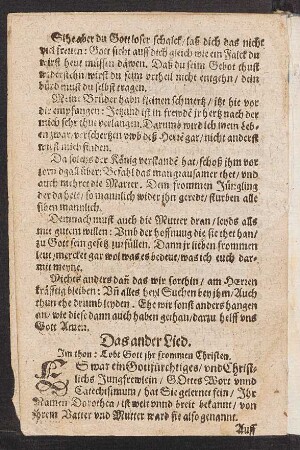 Sihe aber du Gottloser schalck / laß dich das nicht
viel frewen: Gott sicht auff dich gleich wie ein Falck du
wirst hent müssen däwen. Daß du sein Gebot thust
widerstehn wirst du seim vrtheil nicht entgehn / dein
bürd must du selbst tragen.
Meine Brüder habn kleinen schmertz / itzt hie vor
dir empfangen: Jetzund ist in frewdē jr hertz nach der
mich sehr thut verlangen. Darumb wird ich mein Leb-
en zwar, verschertzen vmb deß Herrē gar / nicht anderst
must mich finden.
Da solchs der König verstande hat / schoß jhm vor
zorn d gall vber: Befahl das man grausamer thet / vnd
auch mehret die Marter. Dem frommen Jüngling
der da heit / so mannlich wider jhn geredt / sturben alle
siben mannlich.
Demnach must auch die Mutter dran / leyds alls
mit gutem willen: Vmb der hoffnung die sie thet han /
zu Gott sein gesetz zuffüllen. Dann jr lieben frommen
leut / mercket gar wol was es bedeut / was ich euch dar-
mit meyne.
Nichts anders dañ das wir forthin / am Herren
kräfftig bleiben: Vñ alles heyl Suchen bey jhm / Auch
thun ehe drumb leyden. Ehe wir sonst anders hangen
an / wie dise dann auch haben gethan / darzu helff vns
Gott Amen.
Das ander Lied.
Im thon: Lobt Gott jhr frommen Christen.
ES war ein Gottsfürchtiges / vnd Christ-
lichs Jungfrewlein / GOttes Wort vnnd
Catechisimum / hat Sie gelernet fein / Ihr
Namen Dorothea / ist weit vnnd breit bekannt / von
jhrem Vatter vnd Mutter ward sie also genannt.
Auff